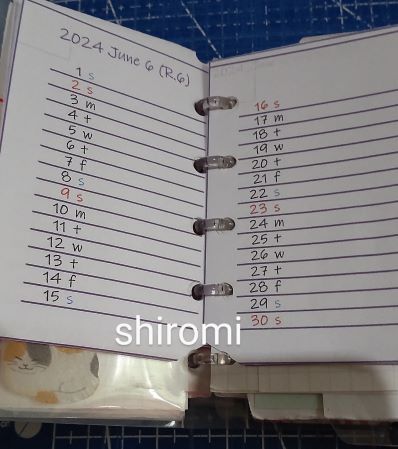 2024 June 6 (R.6)
1 s
2 s
3 m
4 t
5 w
6 t
7 f
8 s
9 s
10 m
11 t
12 w
13 t
14 f
15 s
16 s
17 m
18 t
19 w
20 t
21 f
22 s
23 s
24 m
25 t
26 w
27 t
28 f
29 s
30 s
shiromi